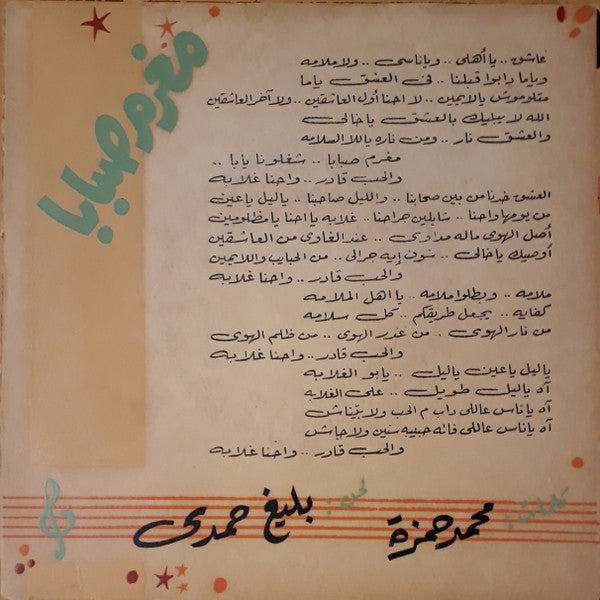 مغرم صبابا
عاشق .. يا أهلى .. وياناسى .. ولا ملامه
وياما دابوا قبلنا .. فى العشق ياما
متلوموش يالايمين .. لا احنا أول العاشقين .. ولا آخر العاشقين
الله لا يبليك بالعشق ياخالى
والعشق نار .. ومن ناره ياللا السلامه
مغرم صبابا .. شغلونا يابا ..
والحب قادر .. واحنا غلابه
العشق خدنا من بين صحابنا .. والليل صاحبنا .. ياليل ياعين
من يومها واحنا .. شايلين جراحنا .. غلابه يا احنا يا مظلومين
أصل الهوى ماله مداوى .. عند الغاوى من العاشقين
أوصيك ياخالى .. شوف إيه جرالى .. من الحبايب واللايمين
والحب قادر .. واحنا غلابه
ملامه .. وبطلوا ملامه .. يا أهل الملامه
كفايه .. يجعل طريقكم .. كل سلامه
من نار الهوى .. من غدر الهوى .. من ظلم الهوى
والحب قادر .. واحنا غلابه
ياليل ياعين ياليل .. يابو الغلابه
آه ياليل طويل .. على الغلابه
آه ياناس عاللى داب م الحب ولا بيّناش
آه ياناس عاللى فاته حبيبه سنين ولا جاش
والحب قادر .. واحنا غلابه
كلمات : محمد حمزة
لحن : بليغ حمدى